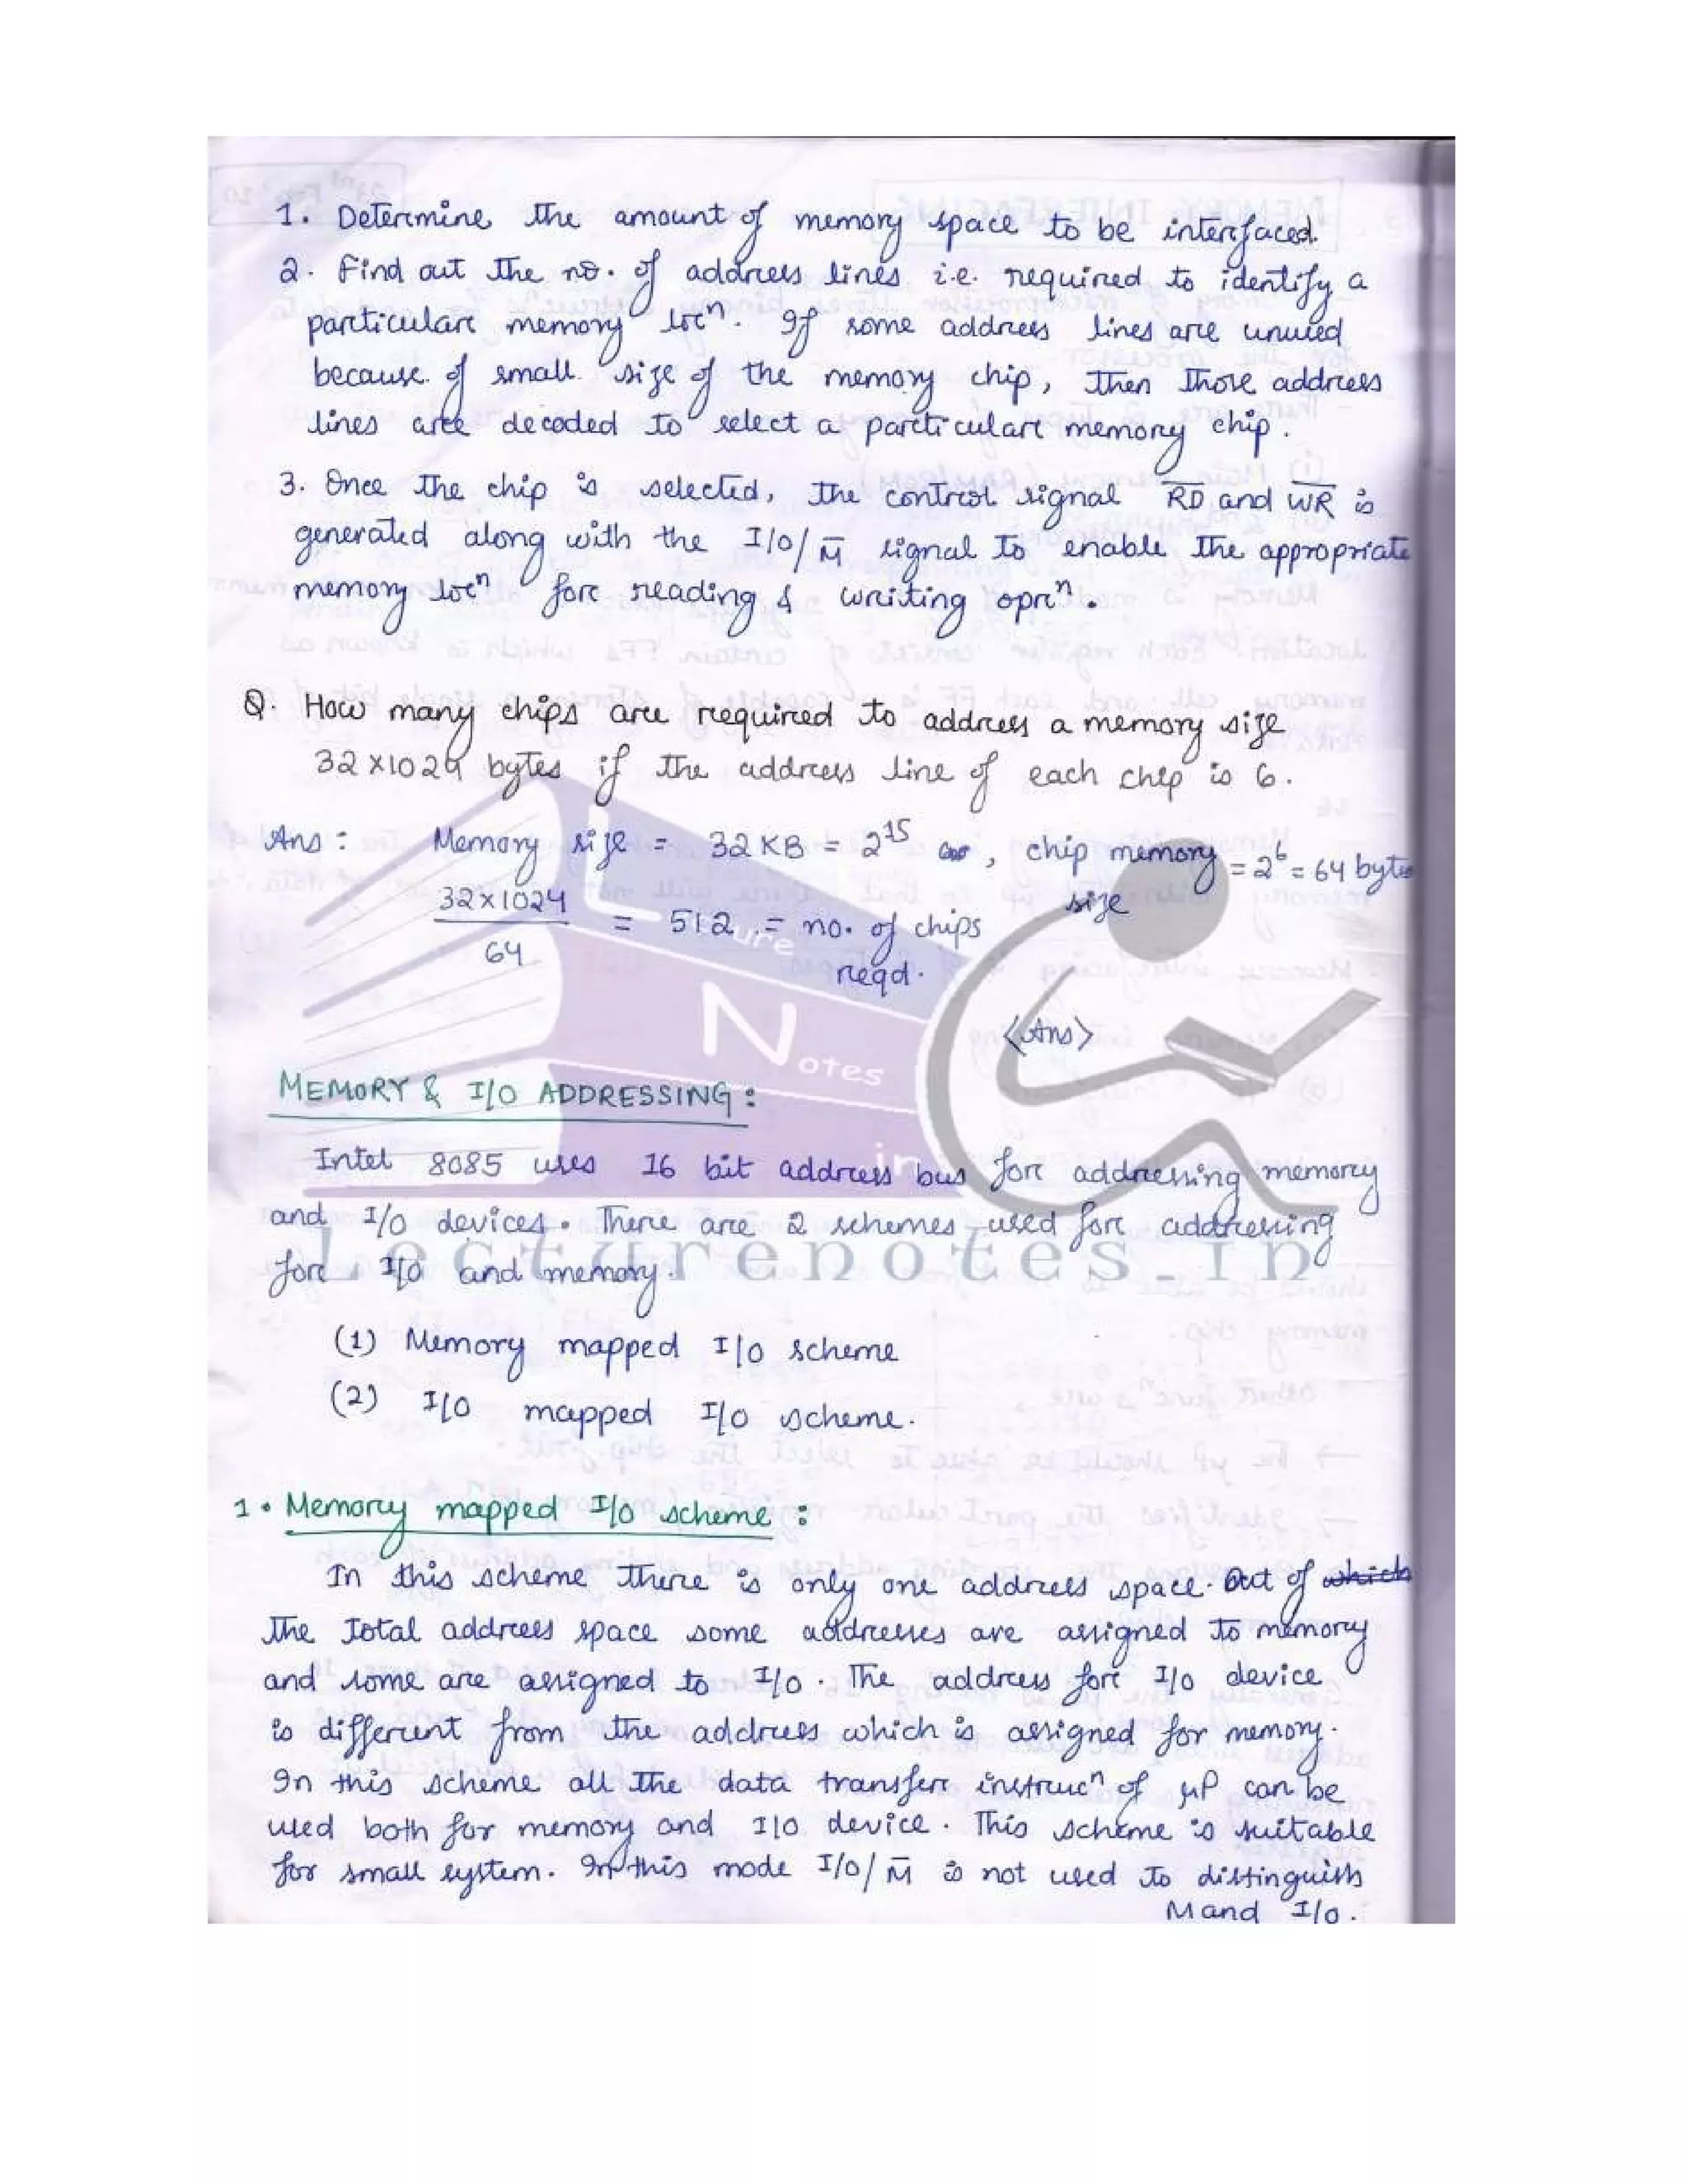 1. Determine the amount of memory space to be interfaced.
2. Find out the no. of address lines i.e. required to identify a
particular memory locⁿ. If some address lines are unused
because of small size of the memory chip, then those address
lines are decoded to select a particular memory chip.
3. Once the chip is selected, the control signal R̅D̅ and W̅R̅ is
generated along with the I/O/M̅ signal to enable the appropriate
memory locⁿ for reading & writing oprⁿ.
Q. How many chips are required to address a memory size
32×1024 bytes if the address line of each chip is 6.
Ans: Memory size = 32KB = 2¹⁵, chip memory = 2⁶ = 64 bytes
size
32×1024
64
= 512 = no. of chips
reqd.
<Ans>
MEMORY & I/O ADDRESSING:
Intel 8085 uses 16 bit address bus for addressing memory
and I/O devices. There are 2 schemes used for addressing
for I/O and memory.
(1) Memory mapped I/O scheme
(2) I/O mapped I/O scheme.
1. Memory mapped I/O scheme:
In this scheme there is only one address space. Out of which
the total address space some addresses are assigned to memory
and some are assigned to I/O. The address for I/O device
is different from the address which is assigned for memory.
In this scheme all the data transfer instrucⁿ of μP can be
used both for memory and I/O device. This scheme is suitable
for small system. In this mode I/O/M̅ is not used to distinguish
M and I/O.
Lecture
Notes
in
Lecturenotes.in